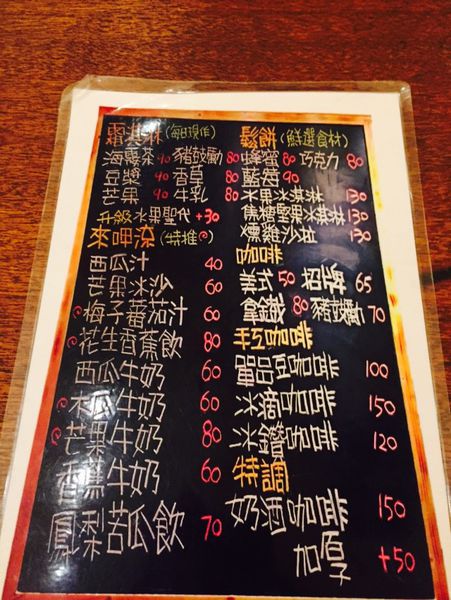 霜淇淋(每日現作)
海鹽茶 90 豬鼓勵 80
豆漿 90 香草 80
芒果 90 牛乳 80
升級水果聖代 +30
來呷涼(特推)
西瓜汁 40
芒果冰沙 60
梅子蕃茄汁 60
花生香蕉飲 80
西瓜牛奶 60
木瓜牛奶 60
芒果牛奶 80
香蕉牛奶 60
鳳梨苦瓜飲 70
鬆餅(鮮選食材)
蜂蜜 80 巧克力 80
藍莓 90
水果冰淇淋 130
焦糖堅果冰淇淋 130
燻雞沙拉 130
咖啡
美式 50 招牌 65
拿鐵 80 豬鼓勵 70
手工咖啡
單品豆咖啡 100
冰滴咖啡 150
冰鑽咖啡 120
特調
奶酒咖啡 150
加厚 +50